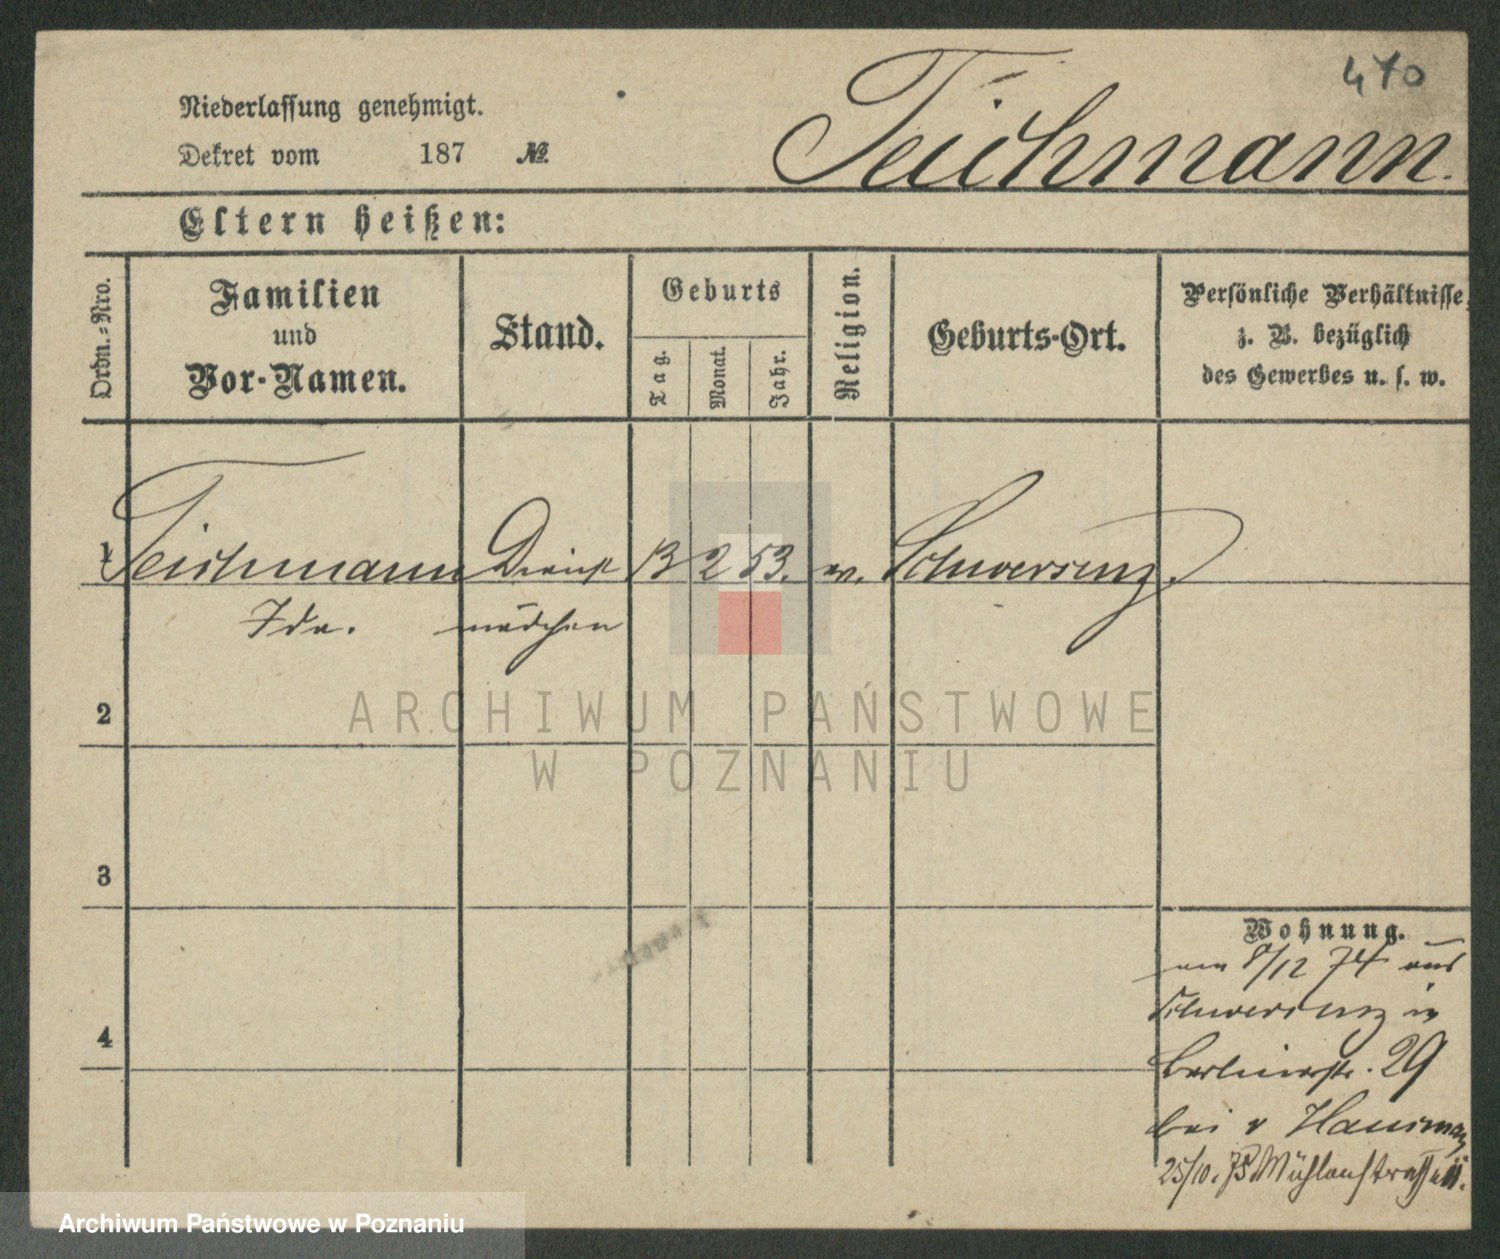 470
Niederlassung genehmigt.
Dekret vom 187 №
Teichmann.
Eltern heißen:
Ordn.=Nro.
Familien
und
Vor-Namen.
Stand.
Geburts
Tag.
Monat.
Jahr.
Religion.
Geburts-Ort.
Persönliche Verhältnisse,
z. B. bezüglich
des Gewerbes u. s. w.
1 Teichmann Dienst 13 2 53. ev. Schwersenz.
Ida. mädchen
2
ARCHIWUM PAŃSTWOWE
W POZNANIU
3
4
Wohnung.
am 8/12 74 aus
Schwersenz in
Berlinerstr. 29
bei v
25/10. 75 Mühlenstraße
Archiwum Państwowe w Poznaniu